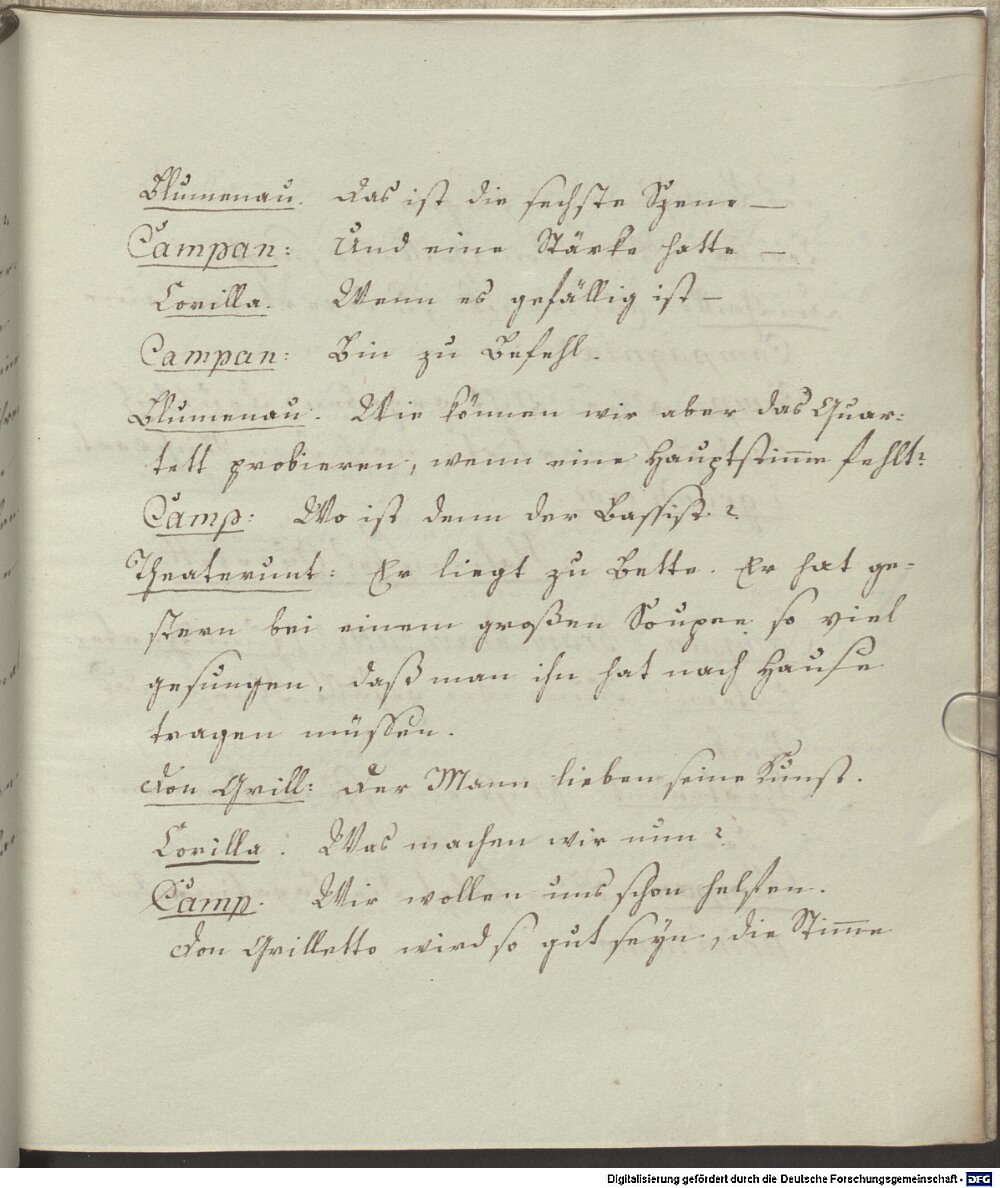 Blumenau. Das ist die sechste Szene —
Campan: Und eine Stärke hatte —
Corilla. Wenn es gefällig ist —
Campan: Bin zu Befehl.
Blumenau. Wie können wir aber das Quar=
tett probieren, wenn eine Hauptstim̅e fehlt?
Camp: Wo ist denn der Bassist?
Theaterunt: Er liegt zu Bette. Er hat ge=
stern bei einem großen Soupee so viel
gesungen, daß man ihn hat nach Hause
tragen müssen.
Don Grill: Der Mann lieben seine Kunst.
Corilla. Was machen wir nun?
Camp. Wir wollen uns schon helfen.
Don Grilletto wird so gut seyn, die Stim̅e
Digitalisierung gefördert durch die Deutsche Forschungsgemeinschaft - DFG